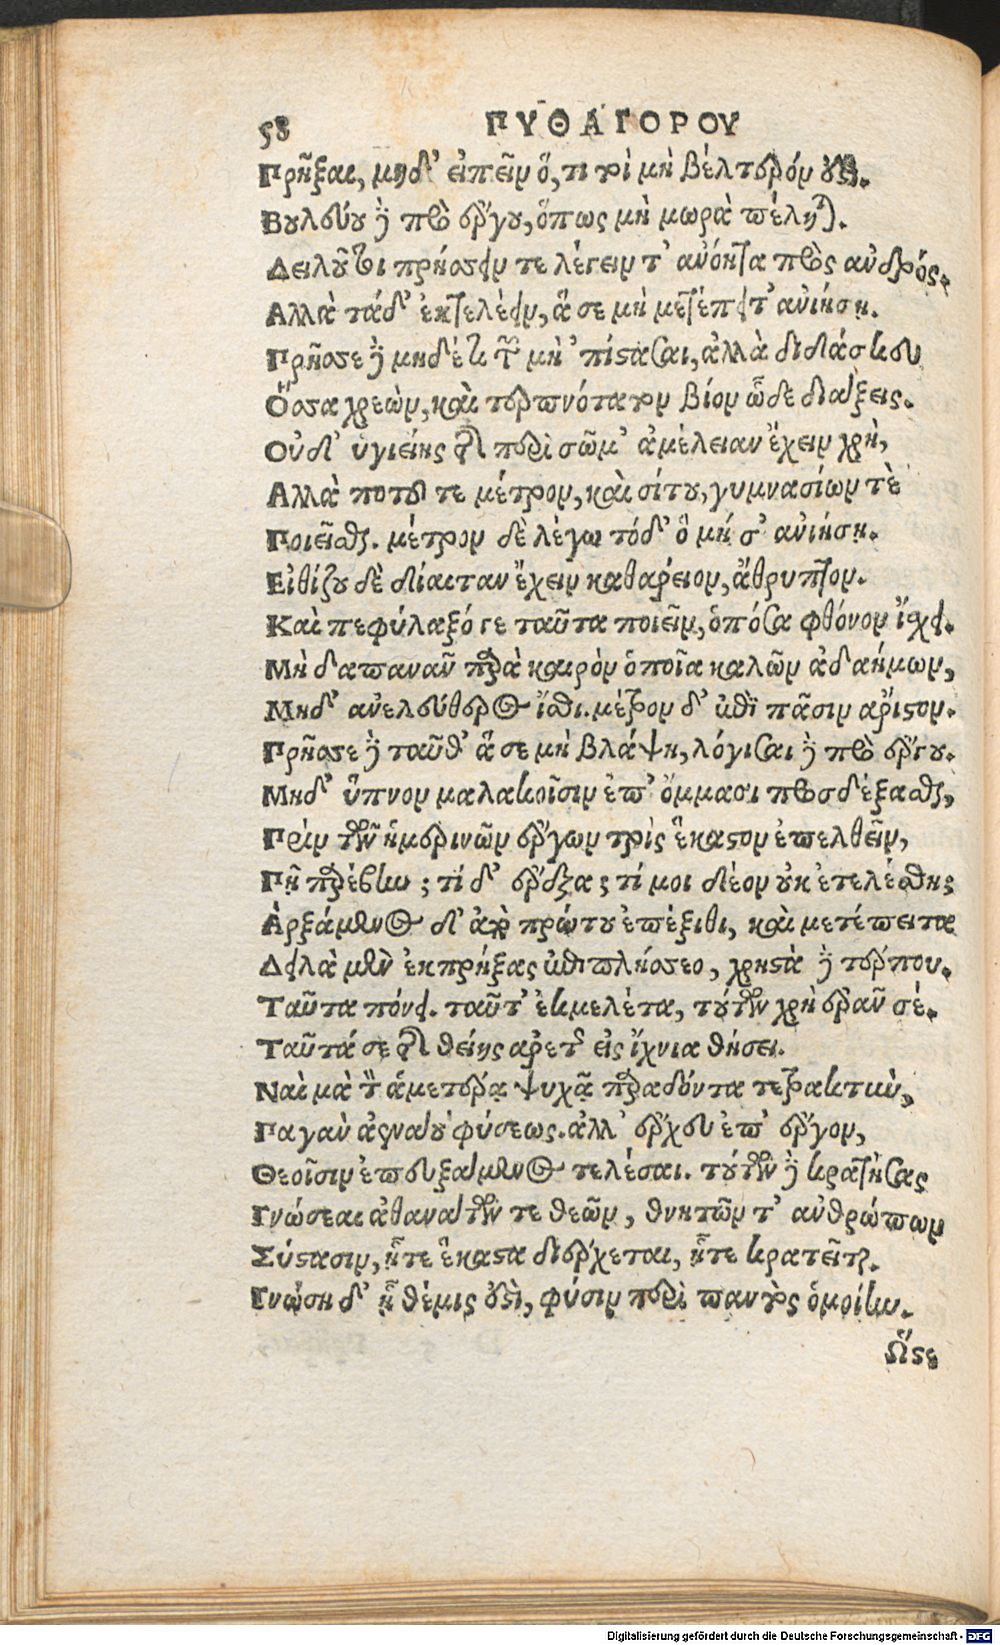 58 ΠΥΘΑΓΟΡΟΥ
Πρῆξαι, μηδ' εἰπεῖν ὅ, τι τοὶ μὴ βέλτερόν ἐστι.
Βουλεύου δὲ πρὸ ἔργου, ὅπως μὴ μωρὰ πέληται.
Δειλοῦ τοι πρήσσειν τε λέγειν τ' ἀνόητα πρὸς ἀνδρός.
Αλλὰ τάδ' ἐκτελέειν, ἅ σε μὴ μετέπειτ' ἀνιήσῃ.
Πρῆσσε δὲ μηδὲ ἓν τῶν μὴ 'πίστασαι, ἀλλὰ διδάσκευ
Ὅσσα χρεὼν, καὶ τερπνότατον βίον ὧδε διάξεις.
Οὐδ' ὑγιείης τῆς περὶ σῶμ' ἀμέλειαν ἔχειν χρὴ,
Αλλὰ ποτοῦ τε μέτρον, καὶ σίτου, γυμνασίων τὲ
Ποιεῖσθαι. μέτρον δὲ λέγω τόδ' ὃ μή σ' ἀνιήσῃ.
Εἰθίζου δὲ δίαιταν ἔχειν καθαρειον, ἄθρυπτον.
Καὶ πεφύλαξό γε ταῦτα ποιεῖν, ὁπόσα φθόνον ἴσχει.
Μὴ δαπανᾶν παρὰ καιρὸν ὁποῖα καλῶν ἀδαήμων,
Μηδ' ἀνελεύθερος ἴσθι. μέτρον δ' ἐπὶ πᾶσιν ἄριστον.
Πρῆσσε δὲ ταῦθ' ἅ σε μὴ βλάψῃ, λόγισαι δὲ πρὸ ἔργου.
Μηδ' ὕπνον μαλακοῖσιν ἐπ' ὄμμασι προσδέξασθαι,
Πρὶν τῶν ἡμερινῶν ἔργων τρὶς ἕκαστον ἐπελθεῖν,
Πῆ παρέβην; τί δ' ἔρεξα; τί μοι δέον οὐκ ἐτελέσθης
Ἀρξάμενος δ' ἀπὸ πρώτου ἐπέξιθι, καὶ μετέπειτα
Δειλὰ μὲν ἐκπρήξας ἐπιπλήσσεο, χρηστὰ δὲ τέρπου.
Ταῦτα πόνει. ταῦτ' ἐκμελέτα, τούτων χρὴ ἐρᾶν σέ.
Ταῦτά σε τῆς θείης ἀρετῆς εἰς ἴχνια θήσει.
Ναὶ μὰ τὸν ἁμετέρᾳ ψυχᾷ παραδόντα τετρακτὺν,
Παγὰν ἀενάου φύσεως. ἀλλ' ἔρχευ ἐπ' ἔργον,
Θεοῖσιν ἐπευξάμενος τελέσαι. τούτων δὲ κρατήσας
Γνώσεαι ἀθανάτων τε θεῶν, θνητῶν τ' ἀνθρώπων
Σύστασιν, ᾗτε ἕκαστα διέρχεται, ᾗτε κρατεῖται.
Γνώσῃ δ' ᾗ θέμις ἐστὶ, φύσιν περὶ παντὸς ὁμοίην.
Ὥστε
Digitalisierung gefördert durch die Deutsche Forschungsgemeinschaft - DFG